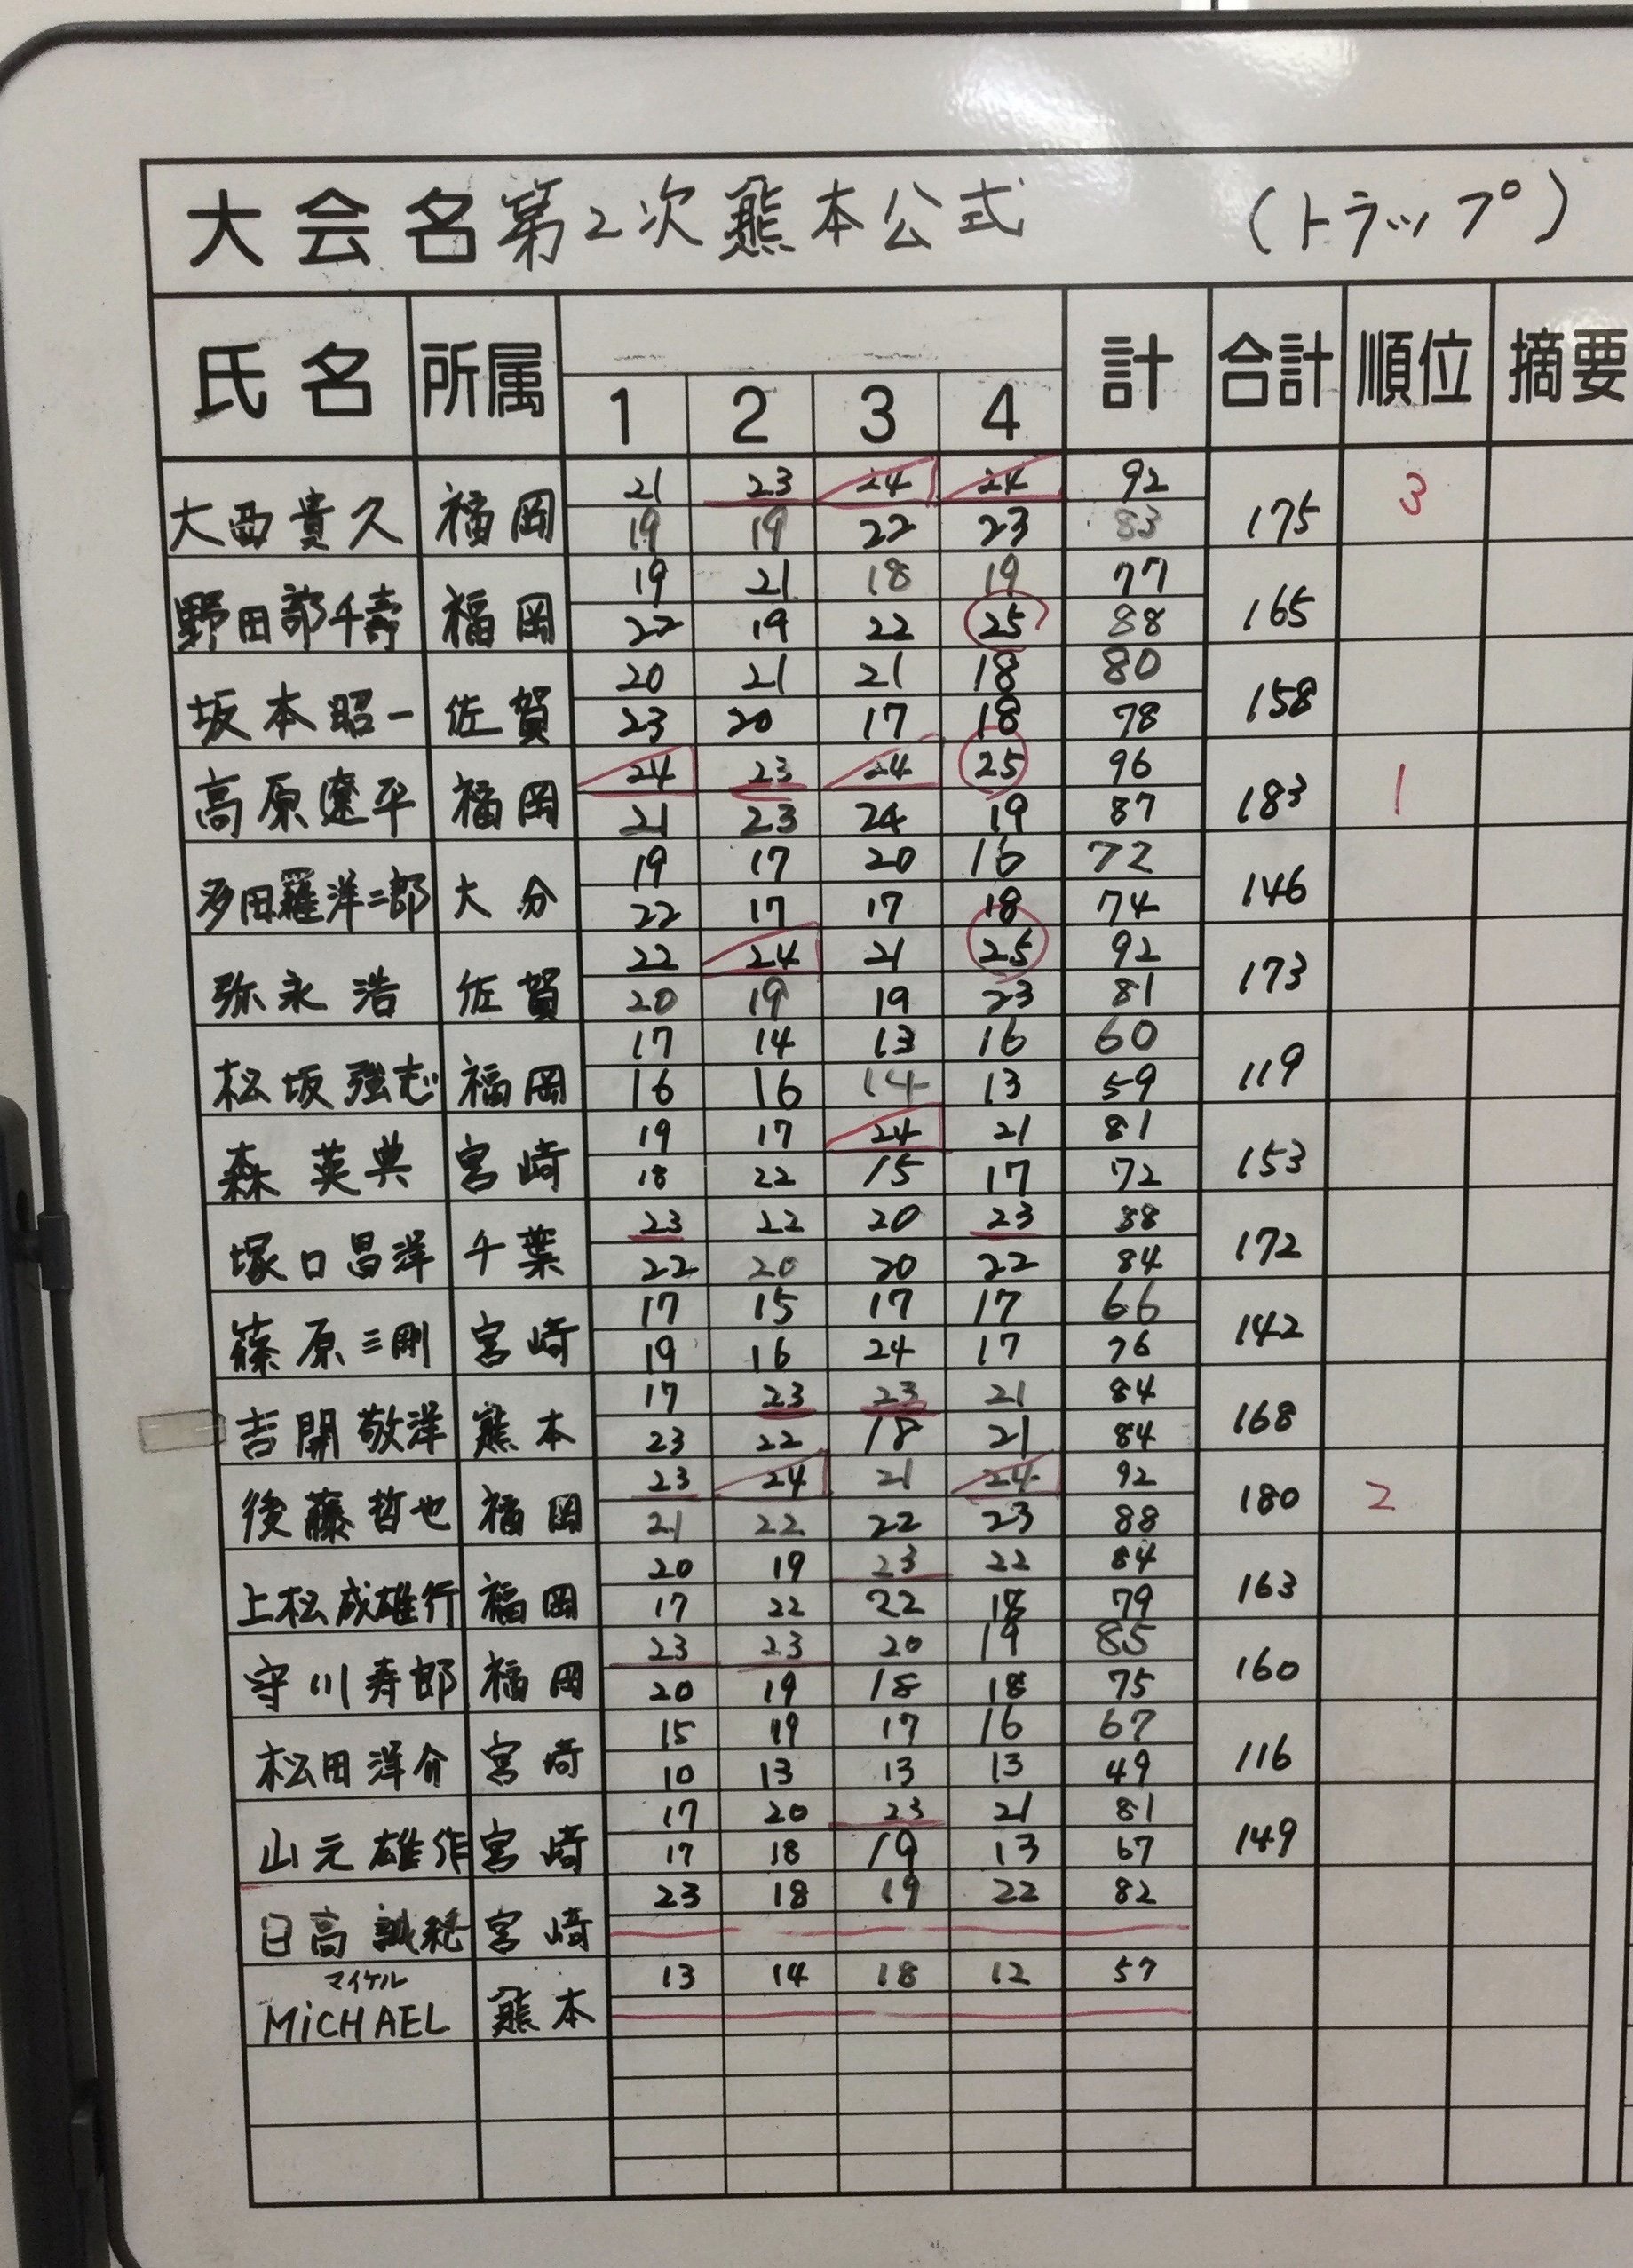 大会名 第2次熊本公式 (トラップ)
氏名 所属 1 2 3 4 計 合計 順位 摘要
大西貴久 福岡 21 23 24 24 92 175 3
19 19 22 23 83
野田部千壽 福岡 19 21 18 19 77 165
22 19 22 25 88
坂本昭一 佐賀 20 21 21 18 80 158
23 20 17 18 78
高原遼平 福岡 24 23 24 25 96 183 1
21 23 24 19 87
多田羅洋二郎 大分 19 17 20 16 72 146
22 17 17 18 74
弥永浩 佐賀 22 24 21 25 92 173
20 19 19 23 81
松坂強志 福岡 17 14 13 16 60 119
16 16 14 13 59
森英典 宮崎 19 17 24 21 81 153
18 22 15 17 72
塚口昌洋 千葉 23 22 20 23 88 172
22 20 20 22 84
篠原三剛 宮崎 17 15 17 17 66 142
19 16 24 17 76
吉開敬洋 熊本 17 23 23 21 84 168
23 22 18 21 84
後藤哲也 福岡 23 24 21 24 92 180 2
21 22 22 23 88
上松成雄行 福岡 20 19 23 22 84 163
17 22 22 18 79
守川寿郎 福岡 23 23 20 19 85 160
20 19 18 18 75
松田洋介 宮崎 15 19 17 16 67 116
10 13 13 13 49
山元雄作 宮崎 17 20 23 21 81 149
17 18 19 13 67
日高 宮崎 23 18 19 22 82
マイケル
MiCHAEL 熊本 13 14 18 12 57